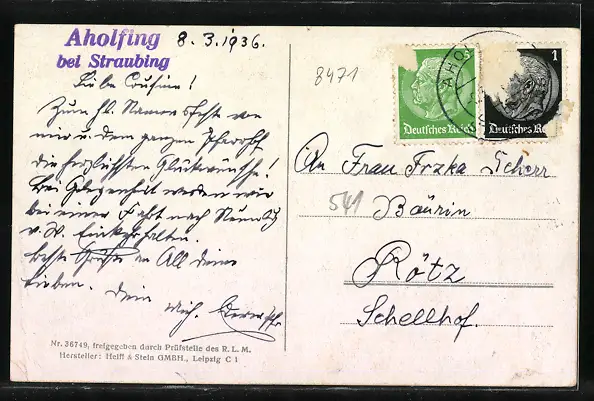 Aholfing
bei Straubing
8.3.1936.
Liebe Cousine!
Zum hl. Namensfeste von
mir u. dem ganzen Pfarrhof
die herzlichsten Glückwünsche!
Bei Gelegenheit werden wir
bei einer Fahrt nach
v. W. Einkehr halten.
Beste Grüße an All deine
Lieben. Dein
Mich.
Nr. 36749, freigegeben durch Prüfstelle des R. L. M.
Hersteller: Heiff & Stein GMBH., Leipzig C 1
8471
5
Deutsches Reich
AHOL
1
Deutsches Re
An Frau Frzka Scherr
541
Bäurin
Rötz
Schellhof.